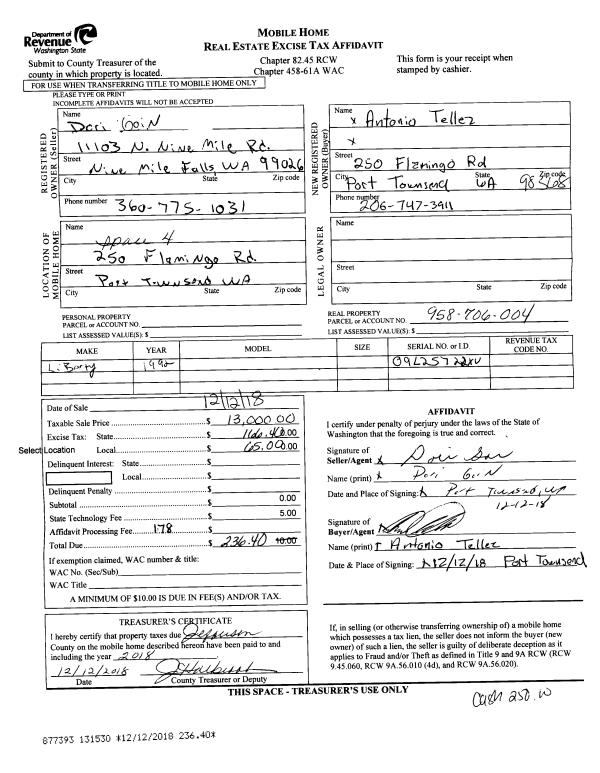 Department of
Revenue
Washington State
MOBILE HOME
REAL ESTATE EXCISE TAX AFFIDAVIT
Submit to County Treasurer of the
county in which property is located.
Chapter 82.45 RCW
Chapter 458-61A WAC
This form is your receipt when
stamped by cashier.
FOR USE WHEN TRANSFERRING TITLE TO MOBILE HOME ONLY
PLEASE TYPE OR PRINT
INCOMPLETE AFFIDAVITS WILL NOT BE ACCEPTED
REGISTERED
OWNER (Seller)
Name
Dori Goin
11103 N. Nine Mile Rd.
Street
Nine Mile Falls, WA 99026
City State Zip code
Phone number 360-775-1031
NEW REGISTERED
OWNER (Buyer)
Name
x Antonio Tellez
x
Street 250 Flamingo Rd
City Port Townsend State WA Zip code 98368
Phone number
206-747-3911
LOCATION OF
MOBILE HOME
Name
Space 4
250 Flamingo Rd.
Street
Port Townsend WA
City State Zip code
LEGAL OWNER
Name
Street
City State Zip code
PERSONAL PROPERTY
PARCEL or ACCOUNT NO.
LIST ASSESSED VALUE(S): $
REAL PROPERTY
PARCEL or ACCOUNT NO. 958-706-004
LIST ASSESSED VALUE(S): $
MAKE YEAR MODEL SIZE SERIAL NO. or I.D. REVENUE TAX
CODE NO.
Liberty 1992 09L25722XU
Date of Sale 12/12/18
Taxable Sale Price $ 13,000.00
Excise Tax: State $ 166.40 0.00
Select Location Local $ 65.00 0.00
Delinquent Interest: State $
Local $
Delinquent Penalty $
Subtotal $ 0.00
State Technology Fee $ 5.00
Affidavit Processing Fee 178 $
Total Due $ 236.40 10.00
If exemption claimed, WAC number & title:
WAC No. (Sec/Sub)
WAC Title
A MINIMUM OF $10.00 IS DUE IN FEE(S) AND/OR TAX.
AFFIDAVIT
I certify under penalty of perjury under the laws of the State of
Washington that the foregoing is true and correct.
Signature of
Seller/Agent x Dori Goin
Name (print) x Dori Goin
Date and Place of Signing: x Port Townsend, WA
12-12-18
Signature of
Buyer/Agent
Name (print) Antonio Tellez
Date & Place of Signing: 12/12/18 Port Townsend
TREASURER'S CERTIFICATE
I hereby certify that property taxes due Jefferson
County on the mobile home described hereon have been paid to and
including the year 2018
12/12/2018
Date County Treasurer or Deputy
If, in selling (or otherwise transferring ownership of) a mobile home
which possesses a tax lien, the seller does not inform the buyer (new
owner) of such a lien, the seller is guilty of deliberate deception as it
applies to Fraud and/or Theft as defined in Title 9 and 9A RCW (RCW
9.45.060, RCW 9A.56.010 (4d), and RCW 9A.56.020).
THIS SPACE - TREASURER'S USE ONLY
Cash 250.00
877393 131530 *12/12/2018 236.40*